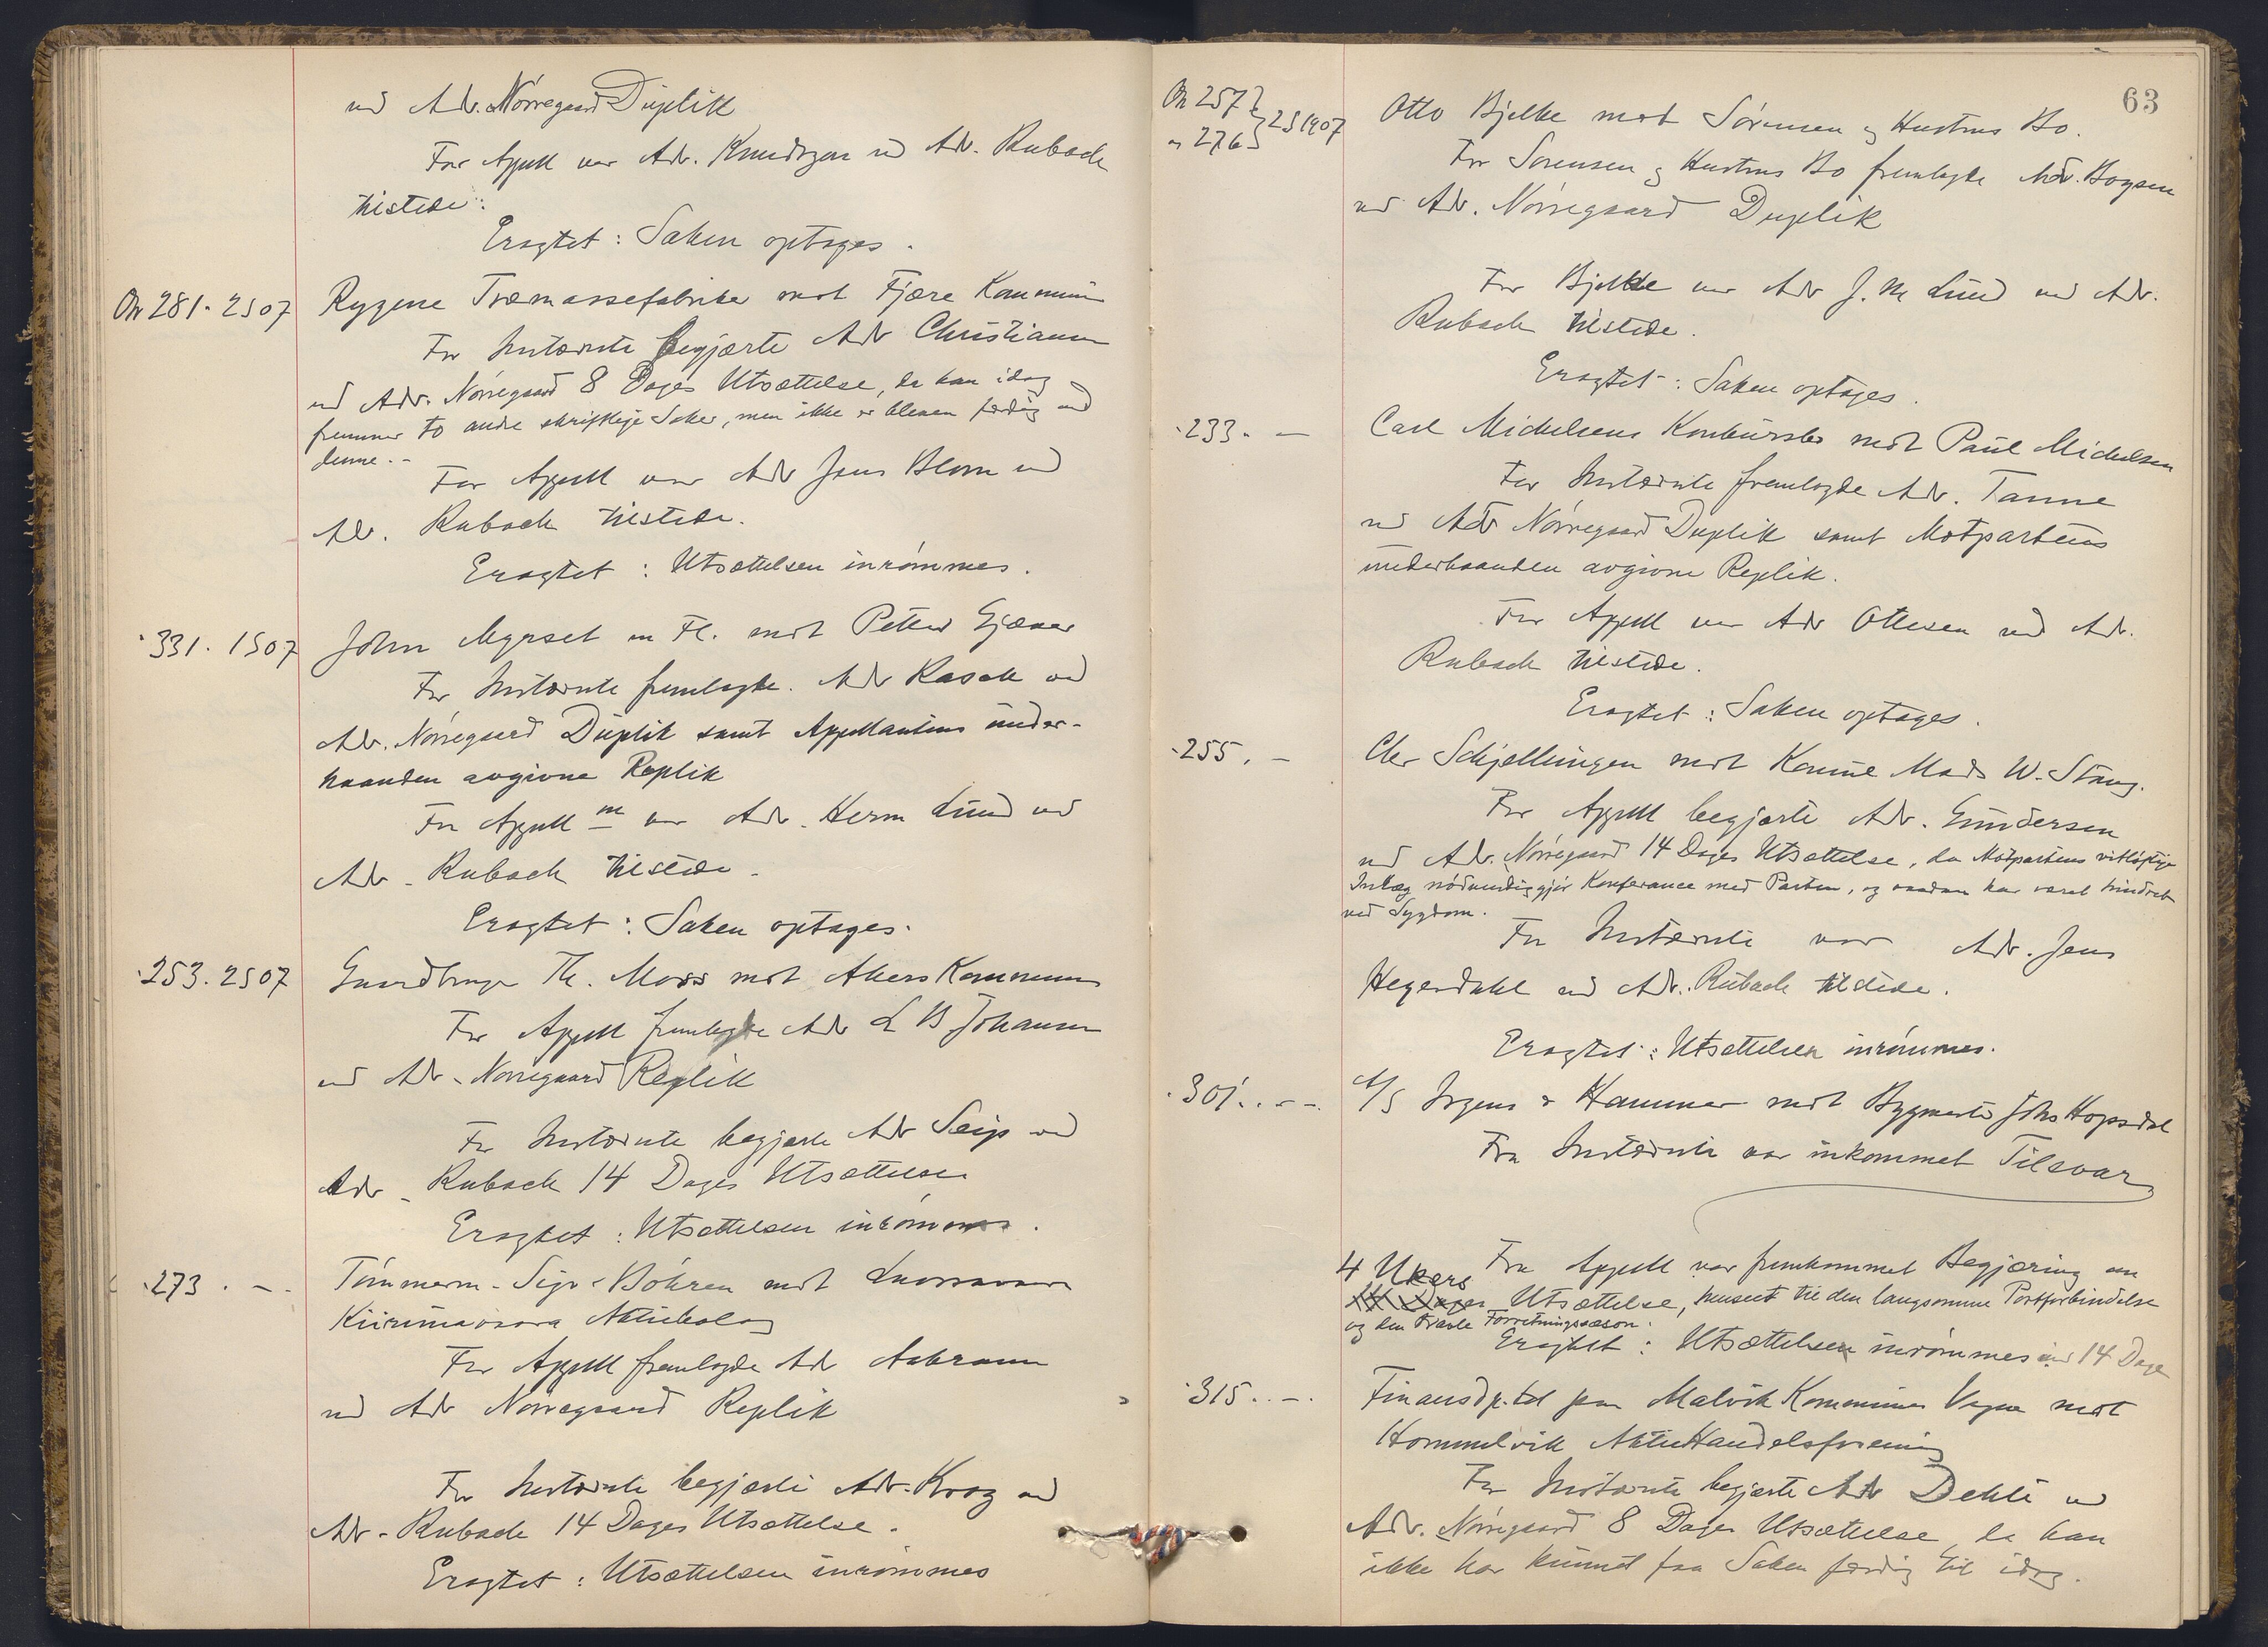 ved Adv. Nörregaard Duplik
For Appell var Adv. Knudtzon ved Adv. Rubach
tilstede.
Eragtet: Saken optages.
On 281. 2S07 Rygene Træmassefabriker mot Fjære Kommune
For Instævnte begjærte Adv Christiansen
ved Adv. Nörregaard 8 Dages Utsættelse, da han idag
fremmer to andre skriftlige Saker, men ikke er bleven færdig med
denne.-
For Appell var Adv Jens Blom ved
Adv. Rubach tilstede.
Eragtet: Utsættelsen inrömmes.
"331. 1S07 John Myrset m Fl. mot Petter Gjævar
For Instævnte fremlagde Adv Rasch ved
Adv. Nörregaard Duplik samt Appellantens under-
haanden avgivne Replik
For Appell m var Adv. Herm Lund ved
Adv. Rubach tilstede.
Eragtet: Saken optages.
"253. 2S07 Gaardbruger Th. Moss mot Akers Kommune
For Appell fremlagde Adv L B Johansen
ved Adv. Nörregaard Replik
For Instævnte begjærte Adv Seip ved
Adv. Rubach 14 Dages Utsættelse
Eragtet: Utsættelsen inrömmes.
"273. - Tömmerm. Sigv. Böhren mot Luossavaara
Kiirunavaara Aktiebolag
For Appell fremlagde Adv Aabraam
ved Adv Nörregaard Replik
For Instævnte begjærte Adv. Krag ved
Adv. Rubach 14 Dages Utsættelse.
Eragtet: Utsættelsen inrömmes
63
On 257 } 2S1907 Otto Bjelke mot Sörensen og Hustrus Bo.
" 276
For Sörensen og Hustrus Bo fremlagde Adv. Boysen
ved Adv. Nörregaard Duplik
For Bjelke var Adv J. M Lund ved Adv.
Rubach tilstede.
Eragtet: Saken optages.
"233. - Carl Michelsens Konkursbo mot Paul Michelsen
For Instævnte fremlagde Adv. Tanne
ved Adv Nörregaard Duplik samt Motpartens
underhaanden avgivne Replik.
For Appell var Adv Ottesen ved Adv.
Rubach tilstede.
Eragtet: Saken optages.
"255. - Chr Schjellungen mot Kommune Mads W. Stang.
For Appell begjærte Adv. Gundersen
ved Adv. Nörregaard 14 Dages Utsættelse, da Motpartens vitlöftige
Inlæg nödvendiggjör Konferance med Parten, og saadan har været hindret
ved Sygdom.
For Instævnte var Adv. Jens
Hegerdahl ved Adv. Rubach tilstede.
Eragtet: Utsættelsen inrömmes.
"301. - - A/S Irgens & Hammer mot Bygmester Johs Hopsdal
Fra Instævnte var inkommet Tilsvar
Fra Appell var fremkommet Begjæring om
4 Ukers
14 Dages Utsættelse, henseet til den langsomme Postforbindelse
og den travle Forretningssæson.
Eragtet: Utsættelsen inrömmes med 14 Dage
"315. - Finansdp.tet paa Malvik Kommunes Vegne mot
Hommelvik Aktie Handelsforening
For Instævnte begjærte Adv Dehli ved
Adv. Nörregaard 8 Dages Utsættelse, da han
ikke har kunnet faa Saken færdig til idag.